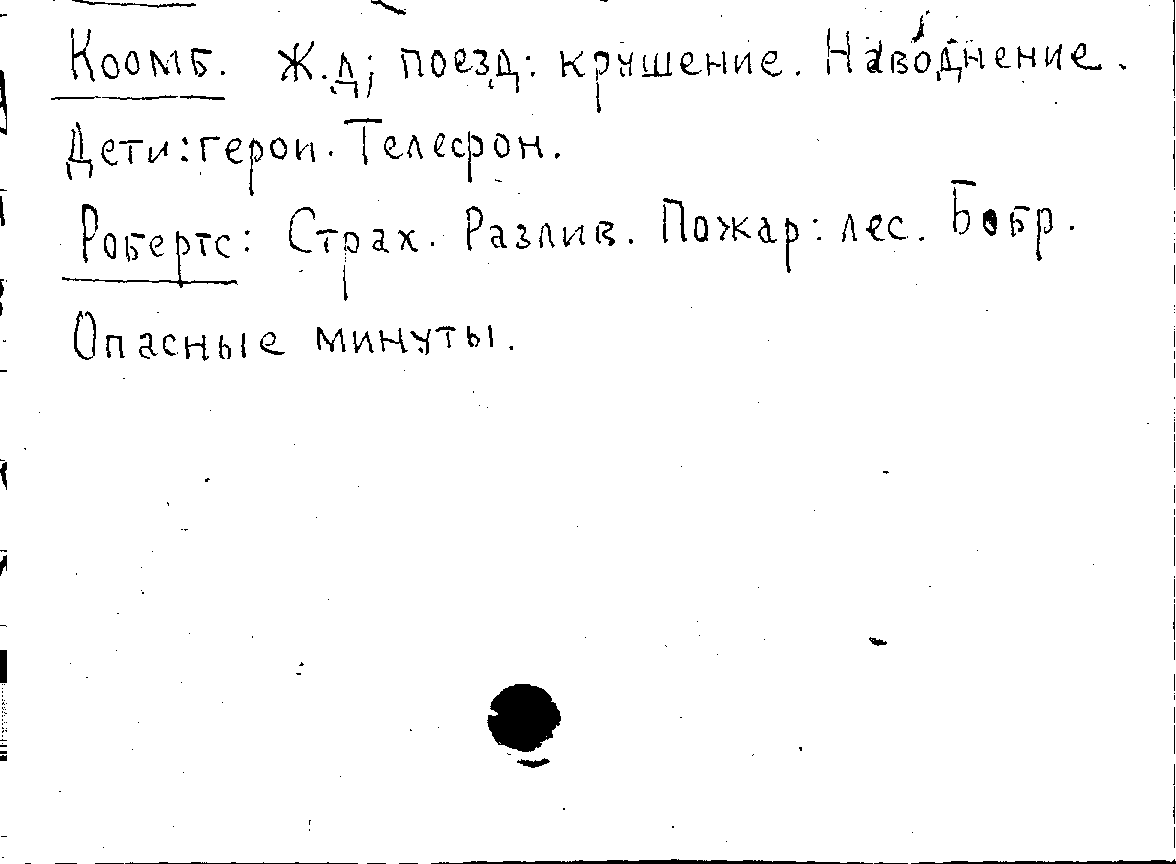 Коомб. Ж.д; поезд: крушение. Наводнение.
Дети: герои. Телефон.
Робертс: Страх. Разлив. Пожар: лес. Бобр.
Опасные минуты.